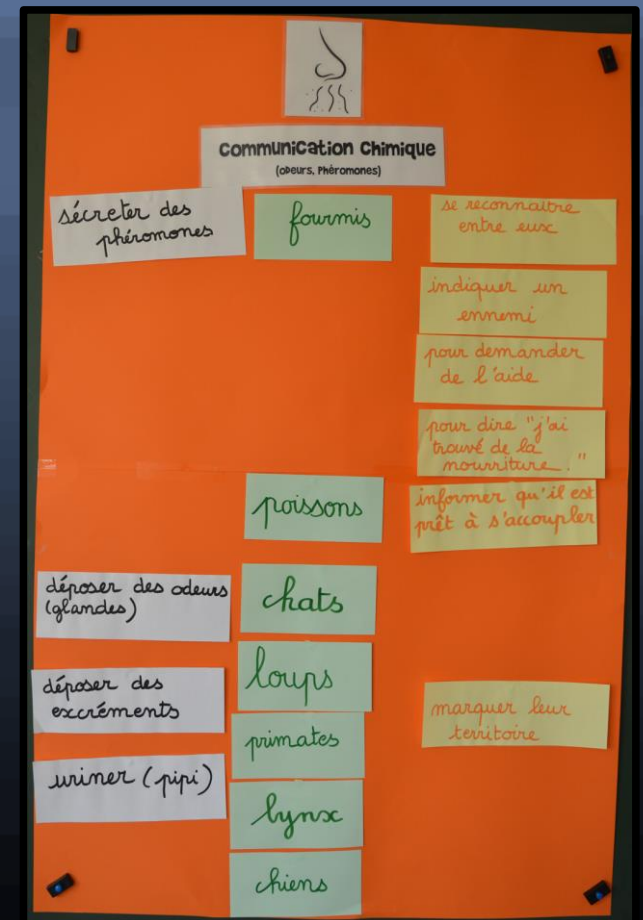 Communication Chimique
(odeurs, Phéromones)
sécreter des
phéromones
fourmis
se reconnaître
entre eux
indiquer un
ennemi
pour demander
de l'aide
pour dire "j'ai
trouvé de la
nourriture."
poissons
informer qu'il est
prêt à s'accoupler
déposer des odeurs
(glandes)
chats
déposer des
excréments
loups
marquer leur
territoire
primates
uriner (pipi)
lynx
chiens